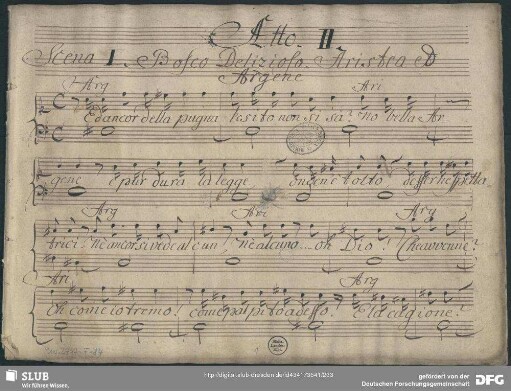 Atto. II
Scena I. Bosco Delizioso. Aristea ed
Argene
Arg Ari
Ed ancor della pugna l'esito non si sa? No bella Ar
gene è pur dura la legge onde n'è tolto d'esser spetta
Arg Ari Arg
trici! ne ancor si vede alcun! ne alcuno... oh Dio! Che avvenne?
Ari Arg
Oh come io tremo! come palpito adesso! E la cagione?
SLUB
Wir führen Wissen.
gefördert von der
Deutschen Forschungsgemeinschaft
DFG